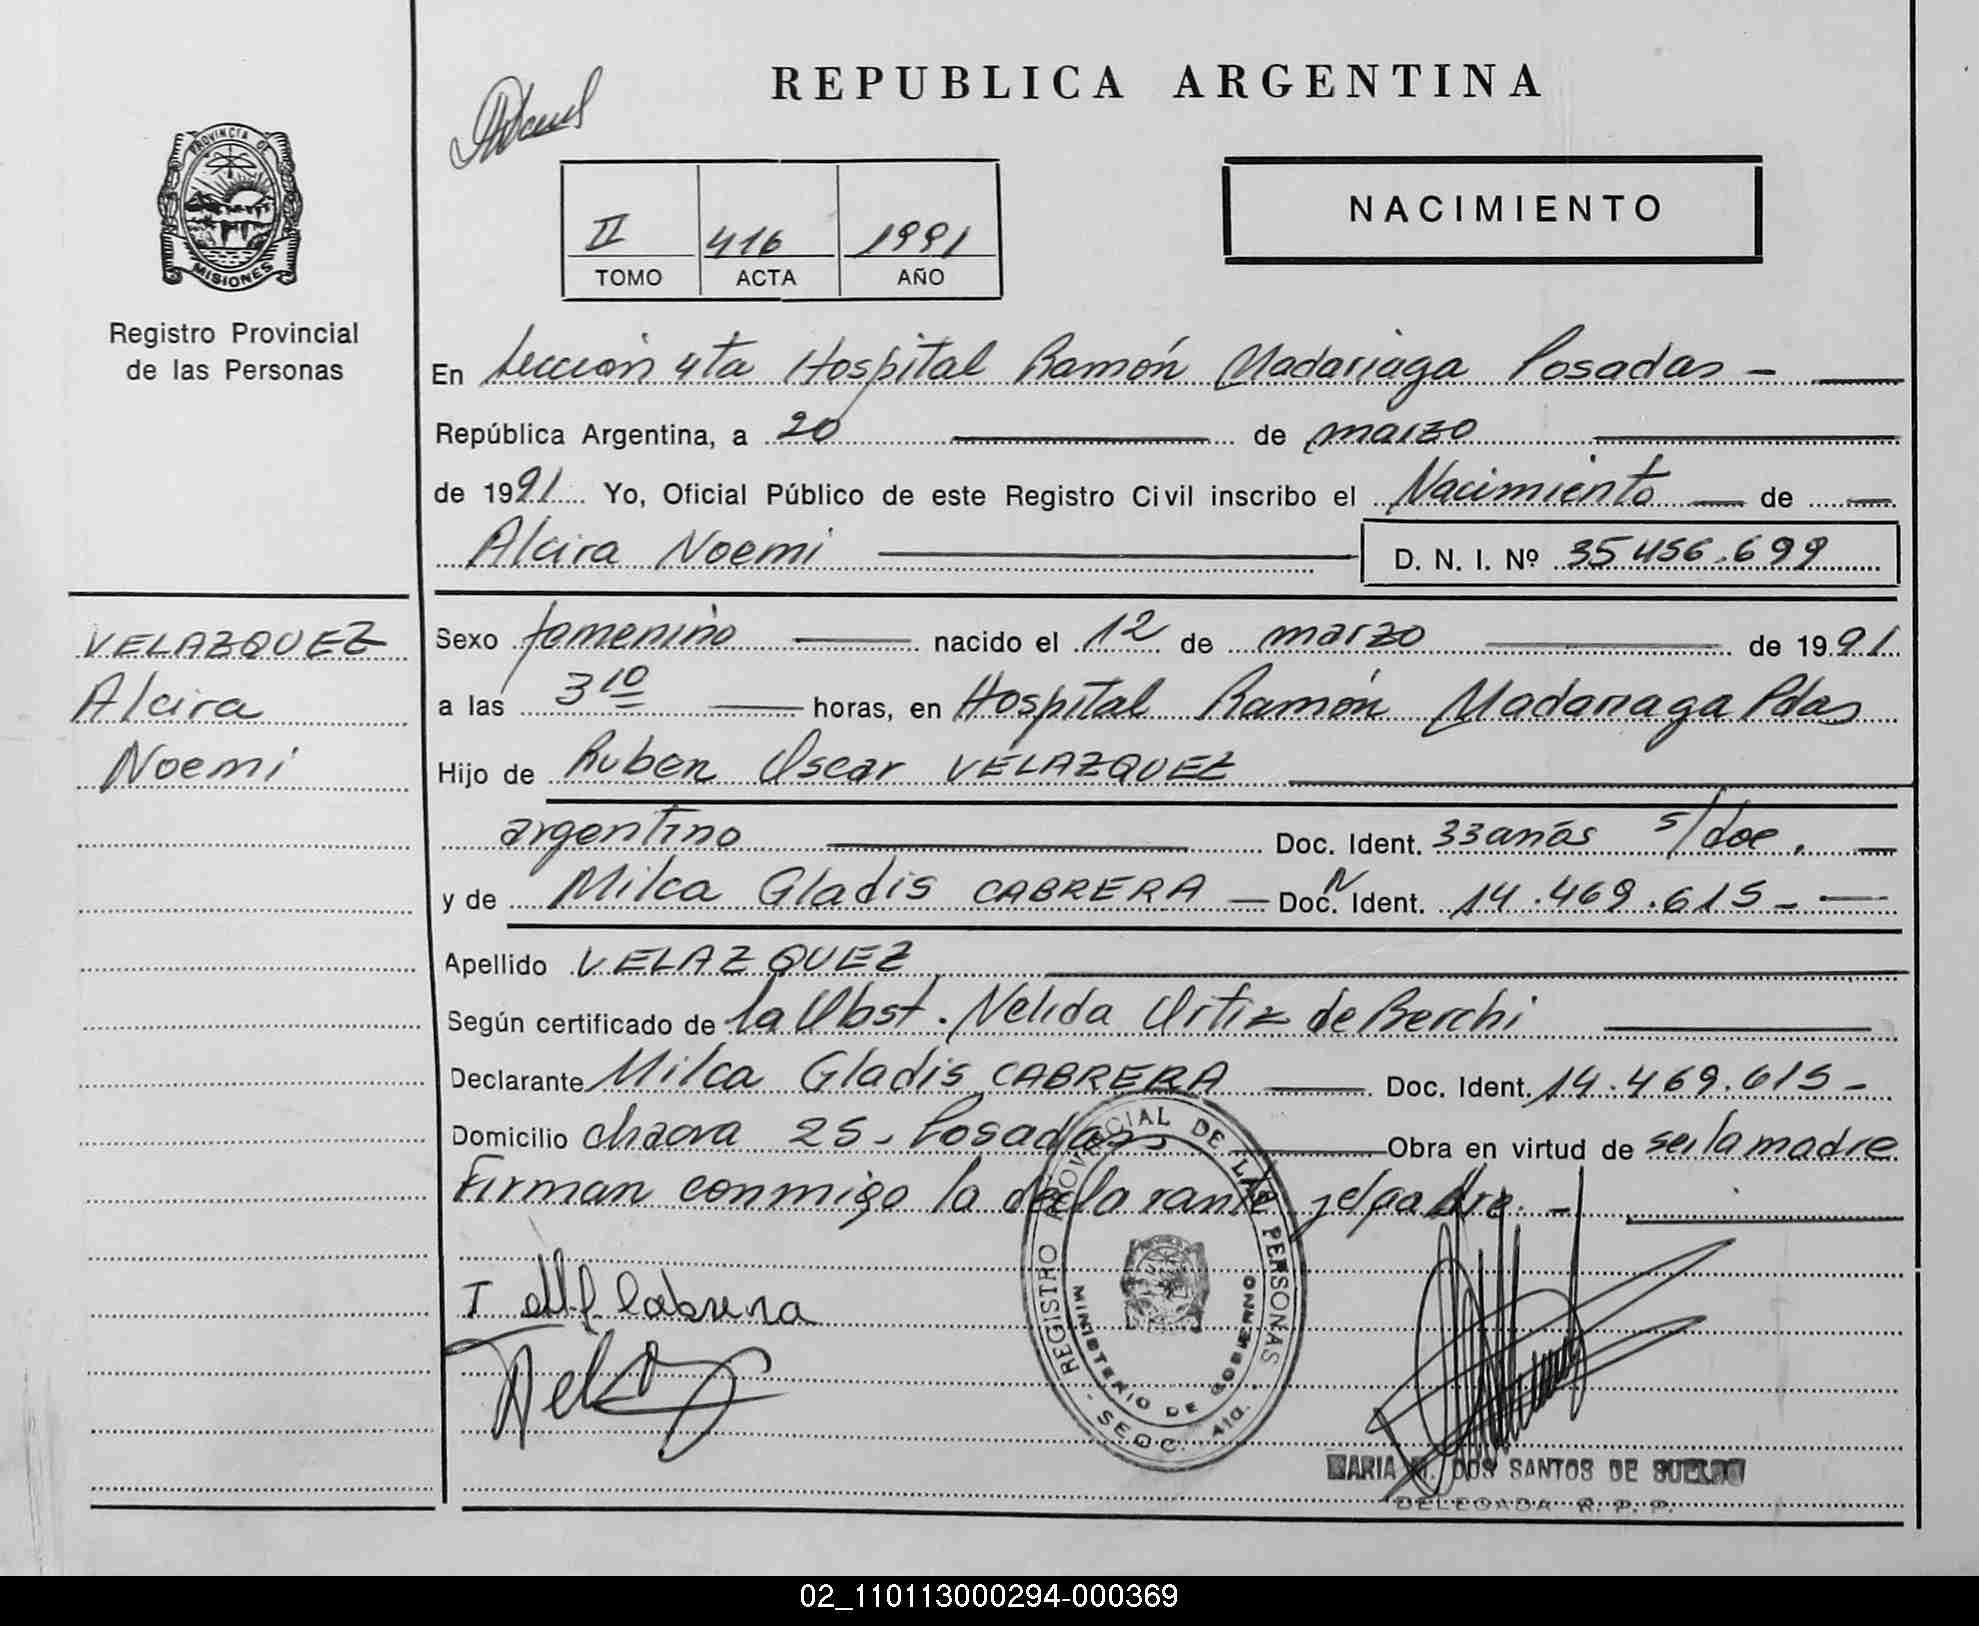 REPUBLICA ARGENTINA
PROVINCIA DE
MISIONES
Registro Provincial
de las Personas
NACIMIENTO
II 416 1991
TOMO ACTA AÑO
En Sección 4ta Hospital Ramón Madariaga Posadas -
República Argentina, a 20 de marzo
de 1991 Yo, Oficial Público de este Registro Civil inscribo el Nacimiento de
Alcira Noemi D. N. I. Nº 35456.699
VELAZQUEZ
Alcira
Noemi
Sexo femenino nacido el 12 de marzo de 1991
a las 3 10 horas, en Hospital Ramón Madariaga Pdas
Hijo de Ruben Oscar VELAZQUEZ
argentino Doc. Ident. 33 años s/doc.
y de Milca Gladis CABRERA — Doc. N Ident. 14.469.615 -
Apellido VELAZQUEZ
Según certificado de la Obst. Nelida Ortiz de Berchi
Declarante Milca Gladis CABRERA Doc. Ident. 14.469.615 -
Domicilio chacra 25 - Posadas Obra en virtud de ser la madre
Firman conmigo la declarante y el padre. -
Cabrera
REGISTRO PROVINCIAL DE LAS PERSONAS
MINISTERIO DE GOBIERNO
- SECC. 4ta.
MARIA M. DOS SANTOS DE SUELDO
DELEGADA R. P. P.
02_110113000294-000369